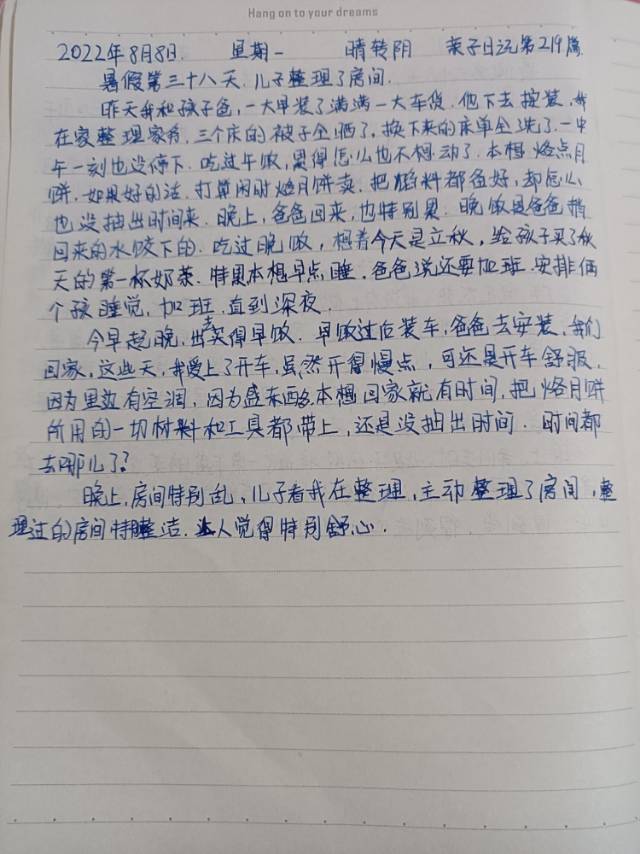 Hang on to your dreams
2022年8月8日 星期一 晴转阴 亲子日记第219篇
暑假第三十八天.儿子整理了房间.
昨天我和孩子爸,一大早装了满满一大车货.他下去按装,我
在家整理家务,三个床的被子全晒了,换下来的床单全洗了.一中
午一刻也没停下.吃过午饭,累得怎么也不想动了.本想烙点月
饼.如果好的话.打算闲时烙月饼卖.把馅料都备好,却怎么
也没抽出时间来.晚上,爸爸回来,也特别累.晚饭是爸爸捎
回来的水饺下的.吃过晚饭,想着今天是立秋,给孩子买了秋
天的第一杯奶茶.特累本想早点睡.爸爸说还要加班.安排俩
个孩睡觉,加班.直到深夜.
今早起晚,出去买得早饭.早饭过后装车,爸爸去安装,我们
回家,这些天,我爱上了开车,虽然开得慢点,可还是开车舒服,
因为里边有空调,因为盛东西多.本想回家就有时间,把烙月饼
所用的一切材料和工具都带上,还是没抽出时间.时间都
去哪儿了?
晚上,房间特别乱,儿子看我在整理,主动整理了房间,整
理过的房间特整洁.让人觉得特别舒心.